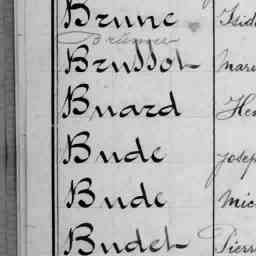 Brune Isid
Brunne
Brussot Mari
Buard Hen
Bude Josep
Bude Mic
Budet Pierr